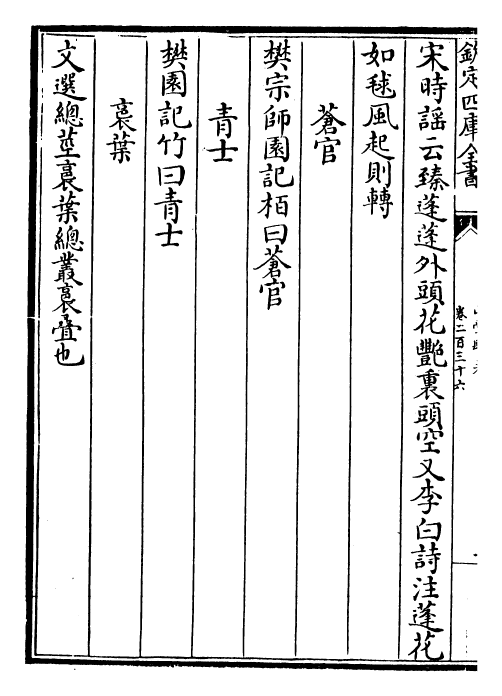 欽定四庫全書
卷二百三十六
宋時謠云臻蓬蓬外頭花豔裏頭空又李白詩注蓬花
如毬風起則轉
蒼官
樊宗師園記栢曰蒼官
青士
樊園記竹曰青士
裛葉
文選總莖裛葉總叢裛疊也